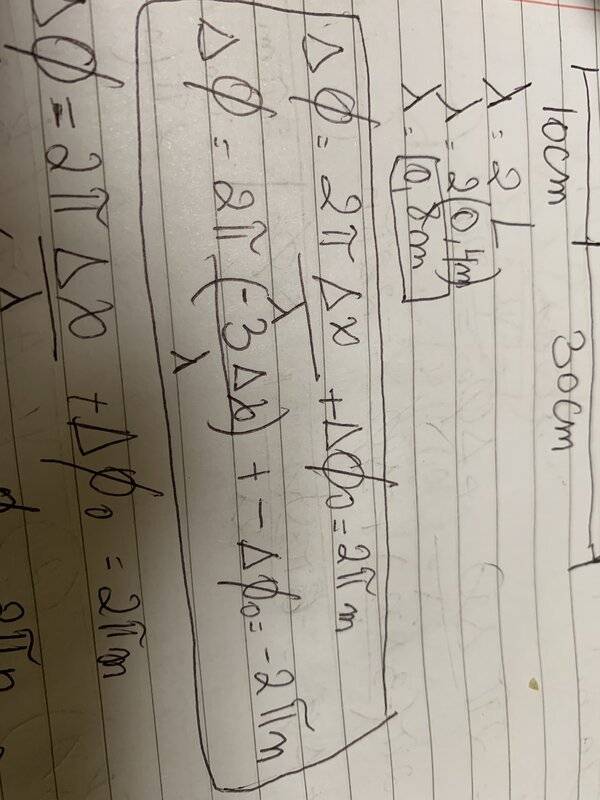 10cm 30cm
λ = 2L
λ = 2(0,4m)
λ = 0,8m
Δφ = 2π Δx/λ + Δφ₀ = 2πm
Δφ = 2π (-3Δx)/λ + - Δφ₀ = -2πm
Δφ = 2π Δx/λ + Δφ₀ = 2πm